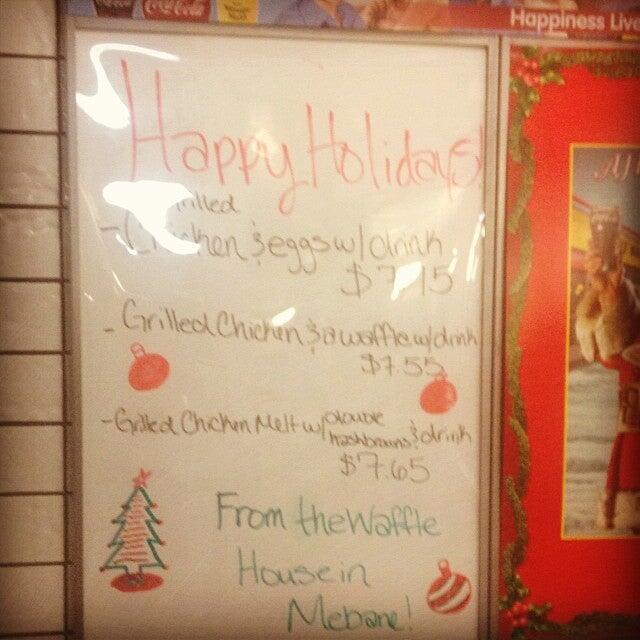 Coca-Cola
Happiness Live
Happy Holidays!
- Chicken & eggs w/ drink
$7.15
- Grilled Chicken & a waffle w/ drink
$7.55
- Grilled Chicken Melt w/ double
hashbrowns & drink
$7.65
From the Waffle
House in
Mebane!